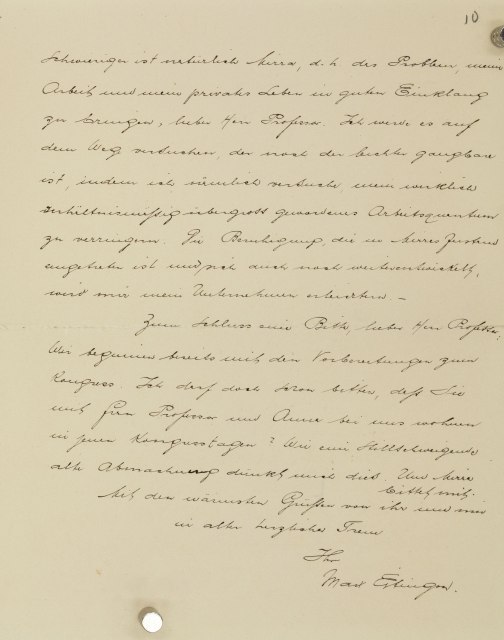 10
Schwieriger ist natürlich Mirra, d. h. das Problem, meine
Arbeit und mein privates Leben in guten Einklang
zu bringen, lieber Herr Professor. Ich werde es auf
dem Weg versuchen, der noch der leichter gangbare
ist, indem ich nämlich versuche, mein wirklich
verhältnismässig übergross gewordenes Arbeitsquantum
zu verringern. Die Beruhigung, die in Mirras Zustand
eingetreten ist und sich auch noch weiterentwickelt,
wird mir mein Unternehmen erleichtern. –
Zum Schluss eine Bitte, lieber Herr Professor:
Wir beginnen bereits mit den Vorbereitungen zum
Kongress. Ich darf doch schon bitten, dass Sie
mit Frau Professor und Anna bei uns wohnen
in jenen Kongresstagen? Wie eine stillschweigende
alte Abmachung dünkt mich dies. Und Mirra
bittet mit.
Mit den wärmsten Grüßen von ihr und mir
in alter herzlicher Treue
Ihr
Max Eitingon.